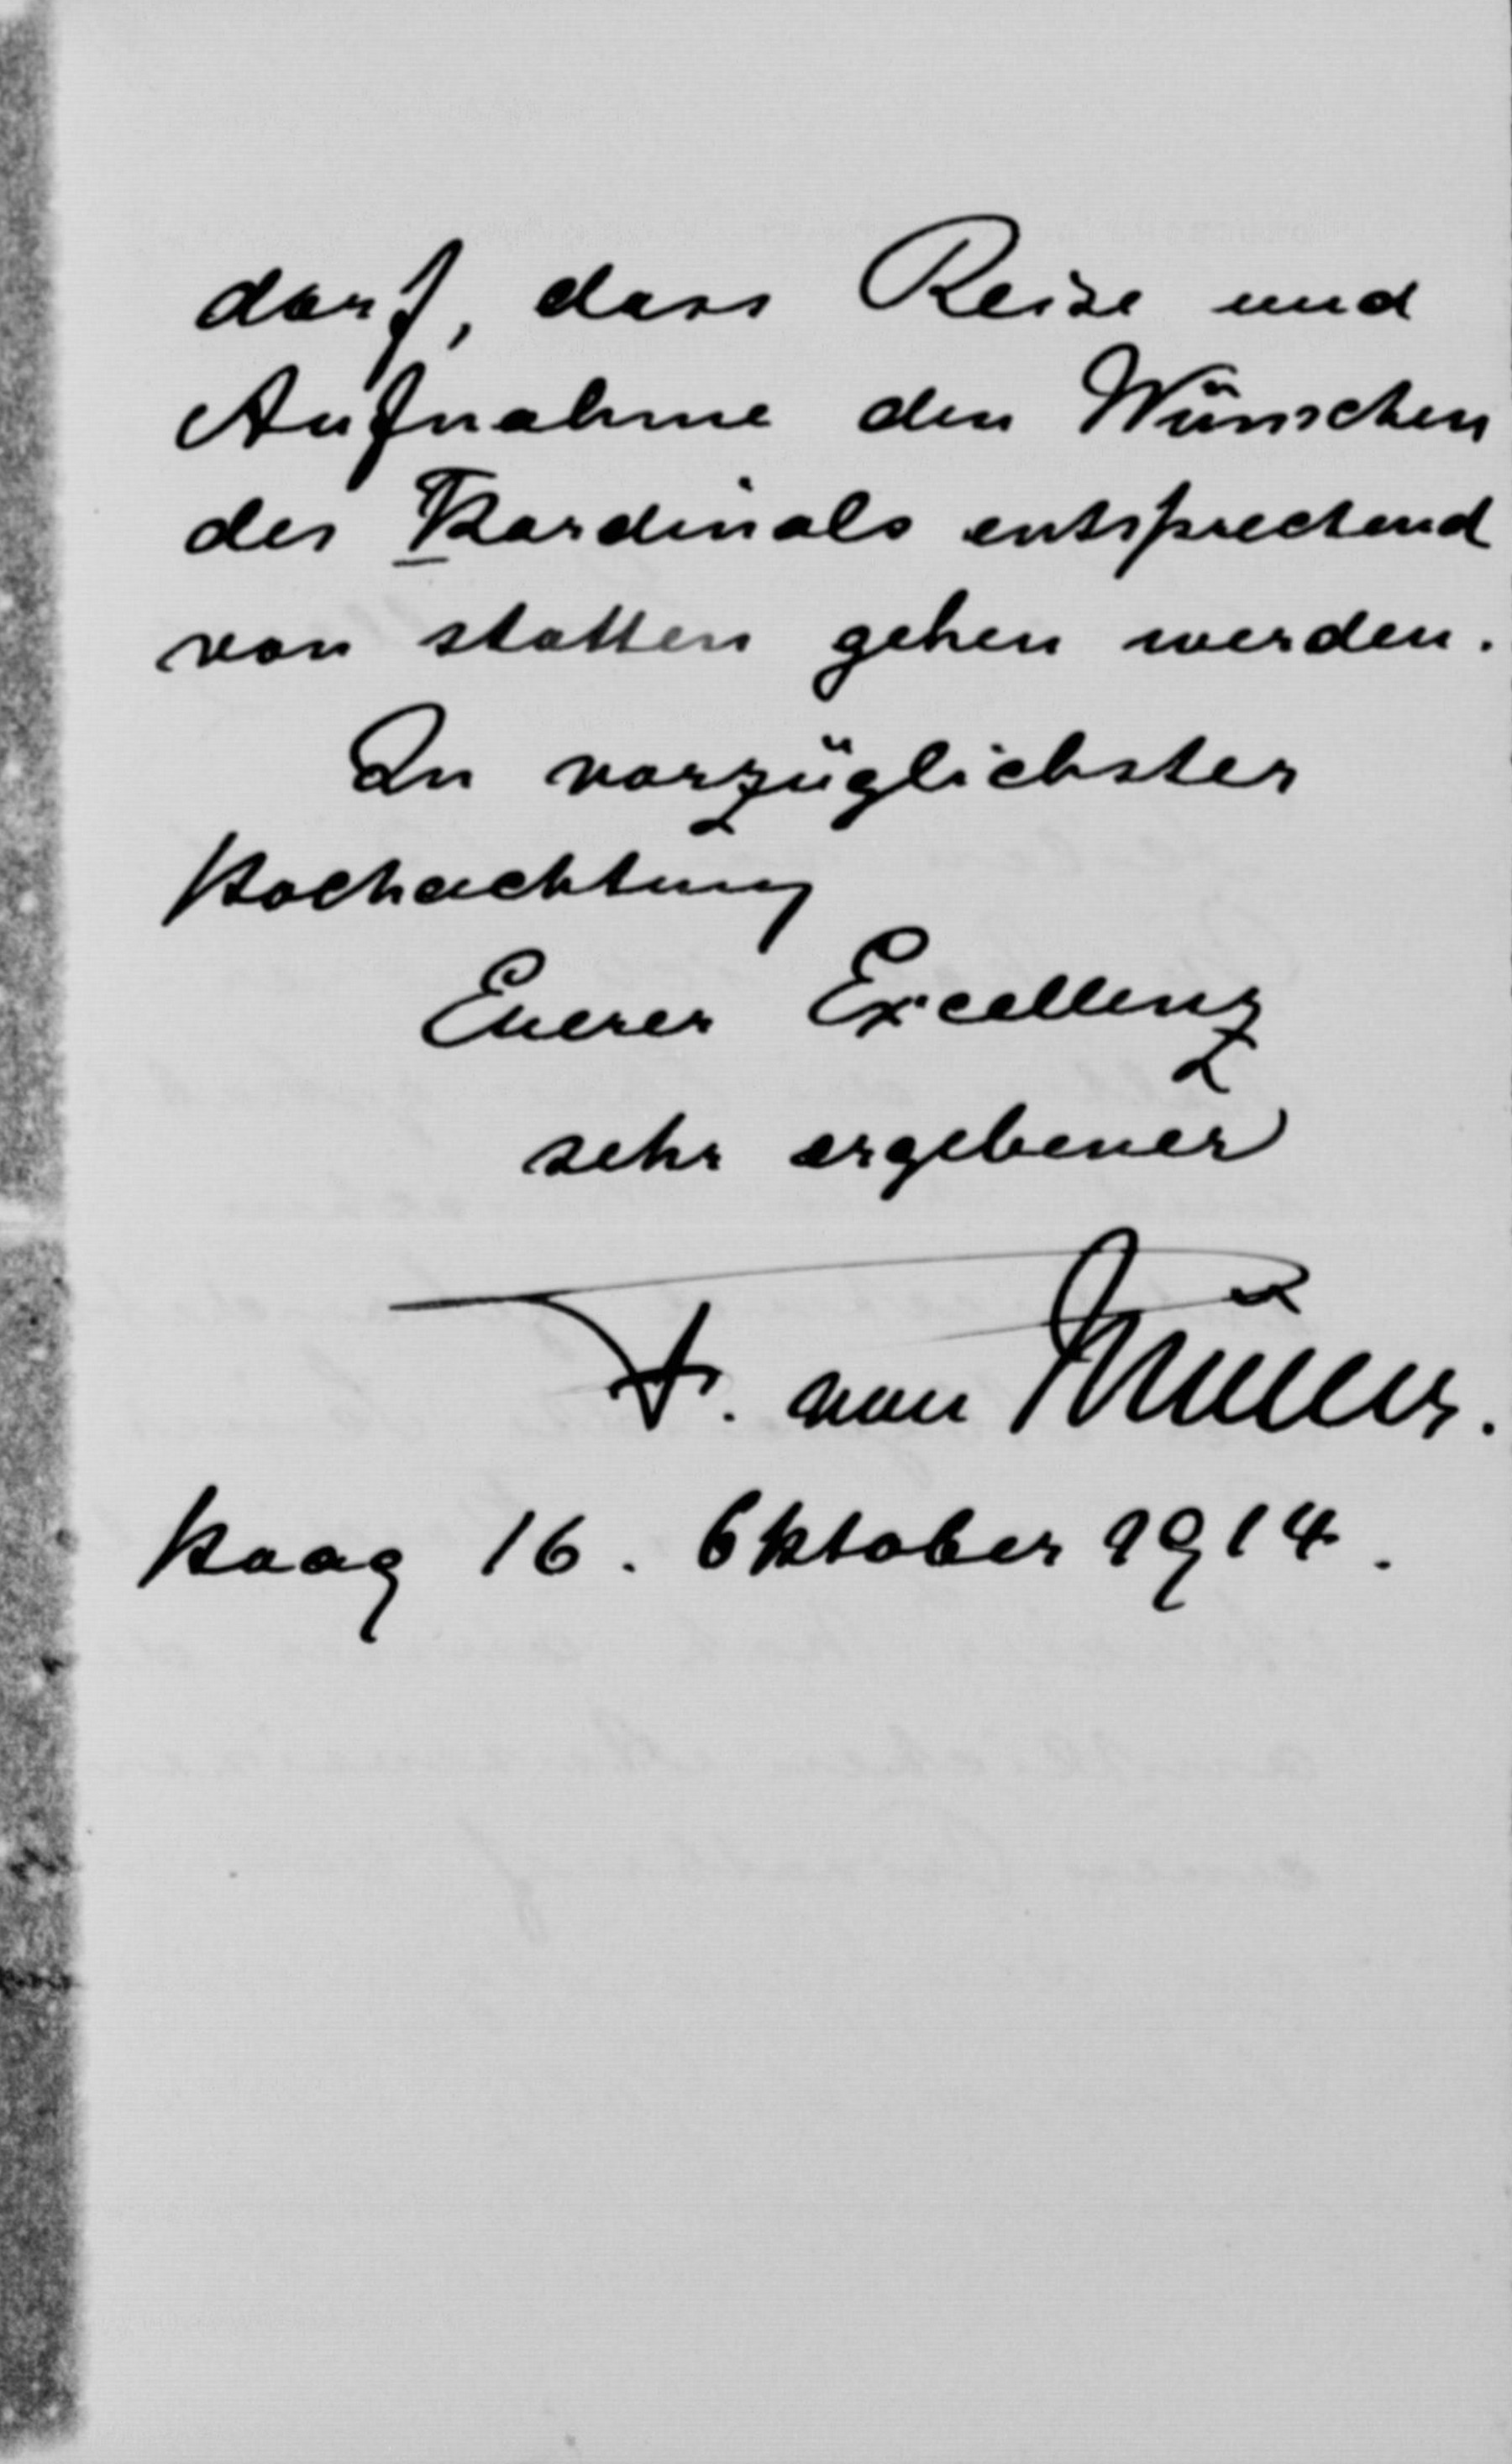 darf, dass Reise und
Aufnahme den Wünschen
des Kardinals entsprechend
von statten gehen werden.
In vorzüglichster
Hochachtung
Euerer Excellenz
sehr ergebener
F. von Müller.
Haag 16. Oktober 1914.